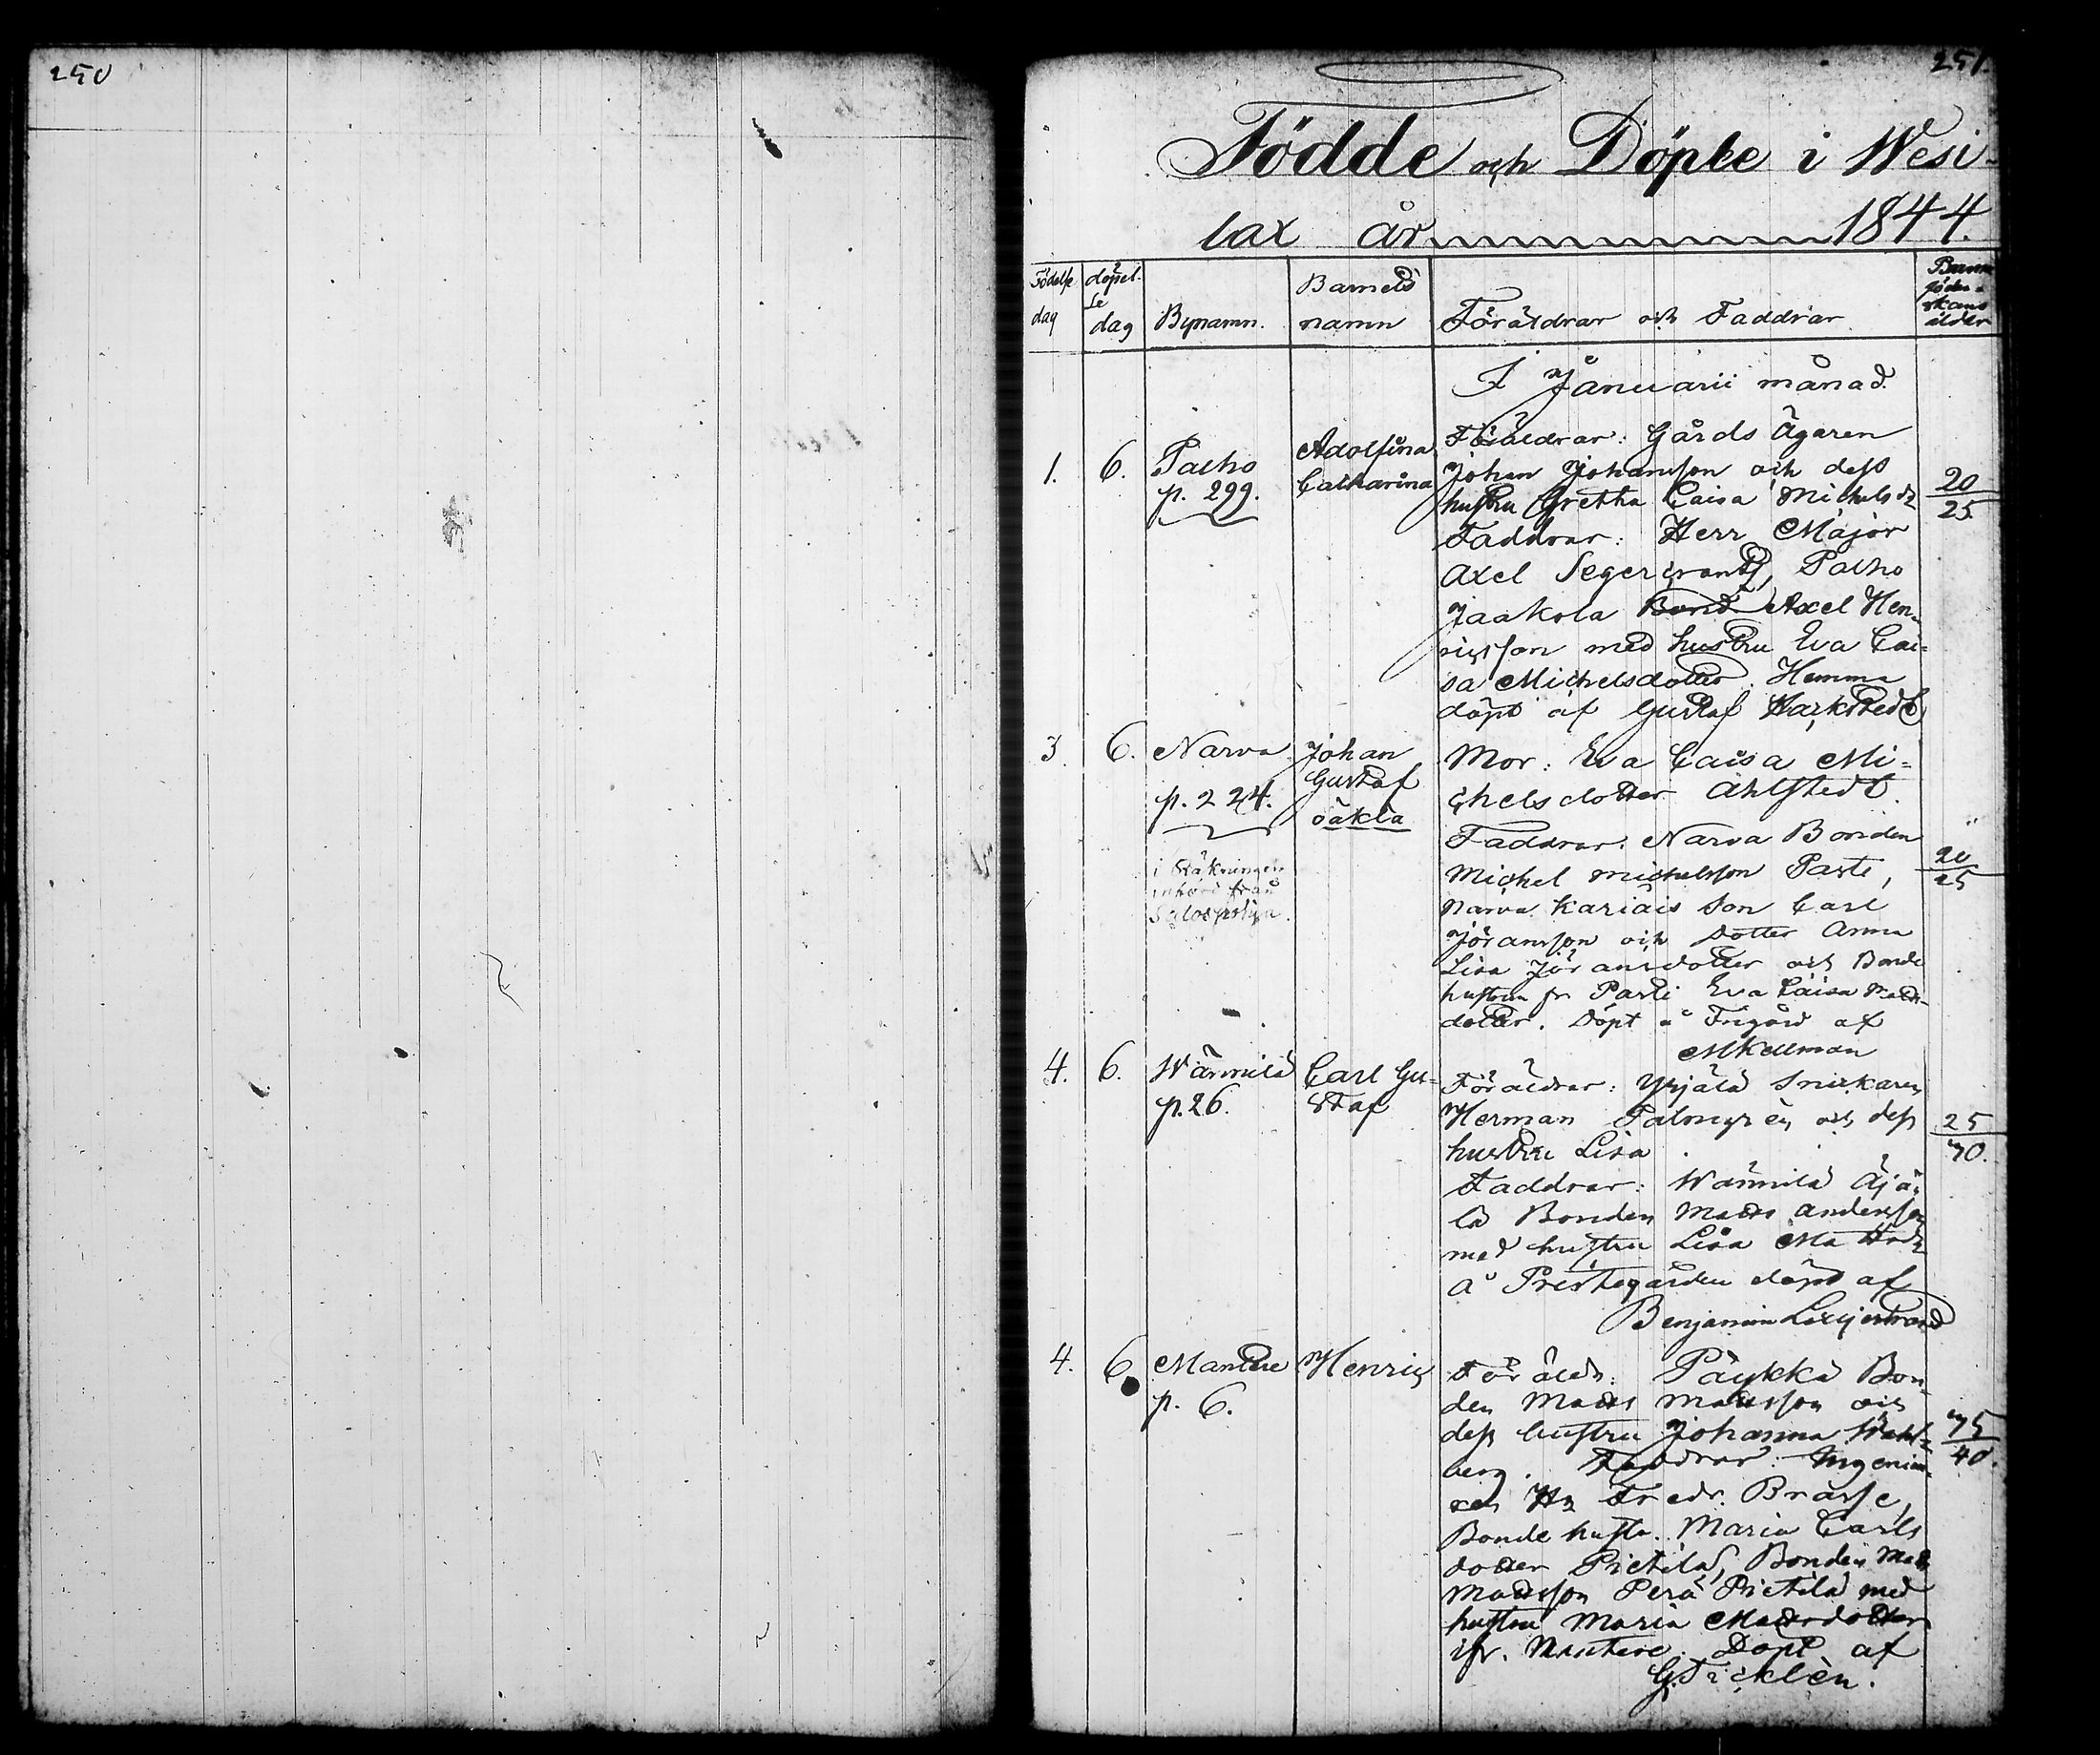 250
251.
Födde och Döpte i Wesi-
lax år 1844.
Födelse
dag
döpel-
se
dag
Bynamn.
Barnets
namn
Föräldrar och Faddrar
Barna
föder-
skans
ålder
I Januarii månad.
1.
6.
Palho
p. 299.
Adolfina
Catharina
Föräldrar: Gårds Ägaren
Johan Johansson och dess
hustru Gretha Caisa Michelsd:
Faddrar: Herr Major
Axel Segercrantz, Palho
Jaakola Bond Axel Hen-
ricsson med hustru Eva Cai-
sa Michelsdotter. Hemma
döpt af Gustaf Harkstedt
20
25
3.
6.
Narva
p. 224.
i Räkningen
införd från
Johan
Gustaf
oäkta
Mor: Eva Caisa Mi-
chelsdotter Ahlstedt.
Faddrar: Narva Bonden
Michel Michelsson Parti,
Narva Kariais Son Carl
Jöransson och Dotter Anna
Lisa Jöransdotter och Bonde
hustrun fr Parti Eva Caisa Matts-
dotter. Döpt å af
MKellman
20
25
4.
6.
Wännilä
p. 26.
Carl Gu-
staf
Föräldrar: Yrjälä Snickaren
Herman Palmgrén och dess
hustru Lisa
Faddrar: Wännilä Äijä-
lä Bonden Matts Andersson
med hustru Lisa Mattsd:
å Prestegården döpt af
Benjamin Liljestrand
25
30.
4.
6.
Mantere
p. 6.
Henric
Föräldr: Päykkä Bon-
den Matts Mattsson och
dess hustru Johanna Wahl-
berg. Faddrar: Ingeniö-
ren Hr Fredr. Brasse,
Bonde hustr. Maria Carls
dotter Pietilä, Bonden Matts
Mattsson Perä Pietilä med
hustru Maria Mattsdotter
ifr. Mantere. Döpt af
G. Ticklén.
35
40.